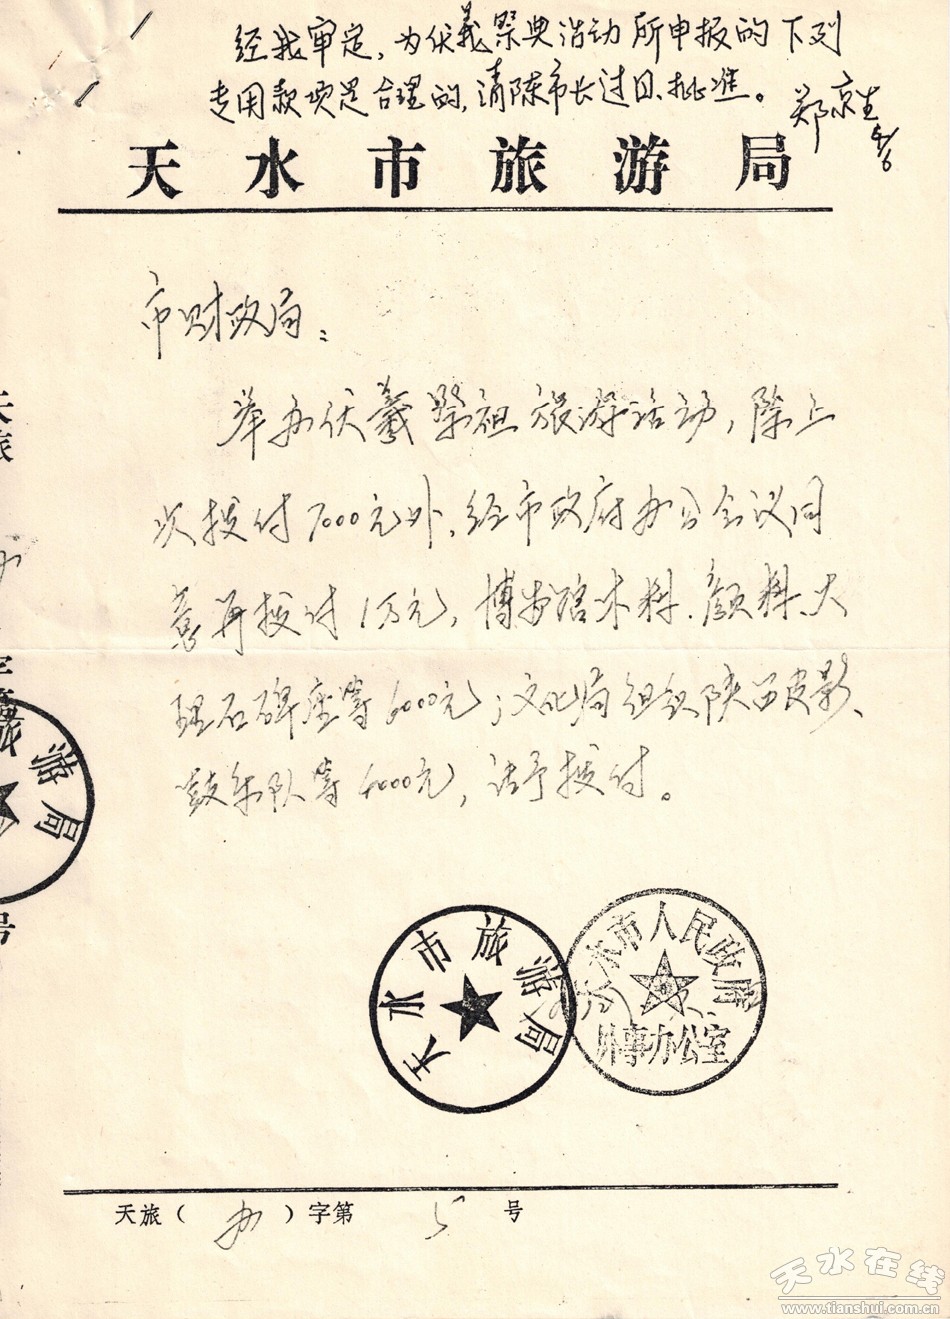 经我审定，为伏羲祭典活动所申报的下列
专用款项是合理的，请陈市长过目、批准。
郑京生
5/6
天水市旅游局
市财政局：
举办伏羲祭祖旅游活动，除上
次拨付7000元外，经市政府办公会议同
意再拨付1万元，博物馆木料、颜料、大
理石碑座等6000元；文化局组织陕西皮影、
鼓乐队等4000元，请予拨付。
天旅
字第
号
旅游局
天水市旅游局
天水市人民政府
外事办公室
天旅（办）字第 5 号
天水在线
www.tianshui.com.cn